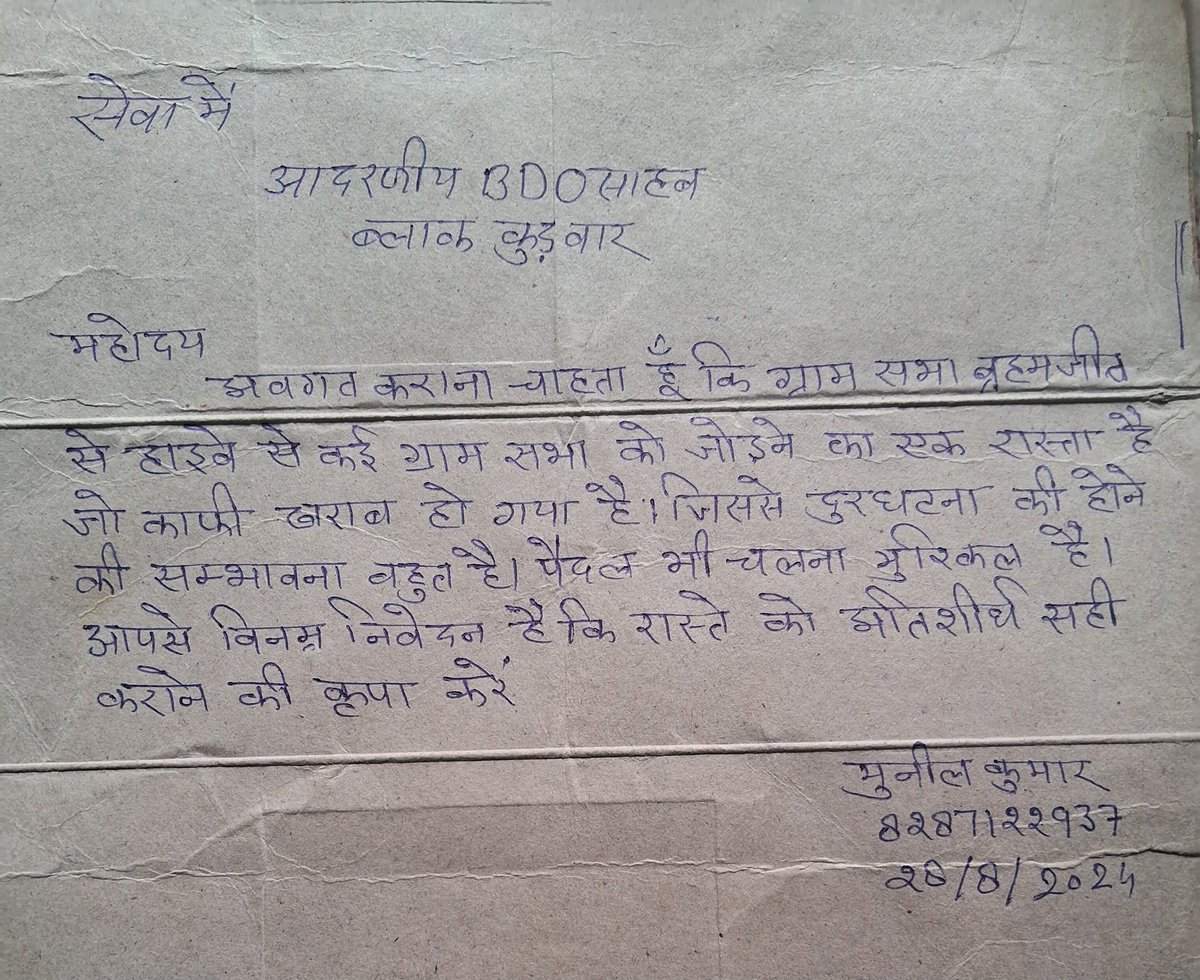 सेवा में
आदरणीय BDO साहब
ब्लाक कुड़वार
महोदय
अवगत कराना चाहता हूँ कि ग्राम सभा ब्रहमजीत
से हाइवे से कई ग्राम सभा को जोड़ने का एक रास्ता है
जो काफी खराब हो गया है। जिससे दुरघटना की होने
की सम्भावना बहुत है। पैदल भी चलना मुश्किल है।
आपसे विनम्र निवेदन है कि रास्ते को अतिशीर्घ सही
कराने की कृपा करें
सुनील कुमार
8287122937
28/8/2024